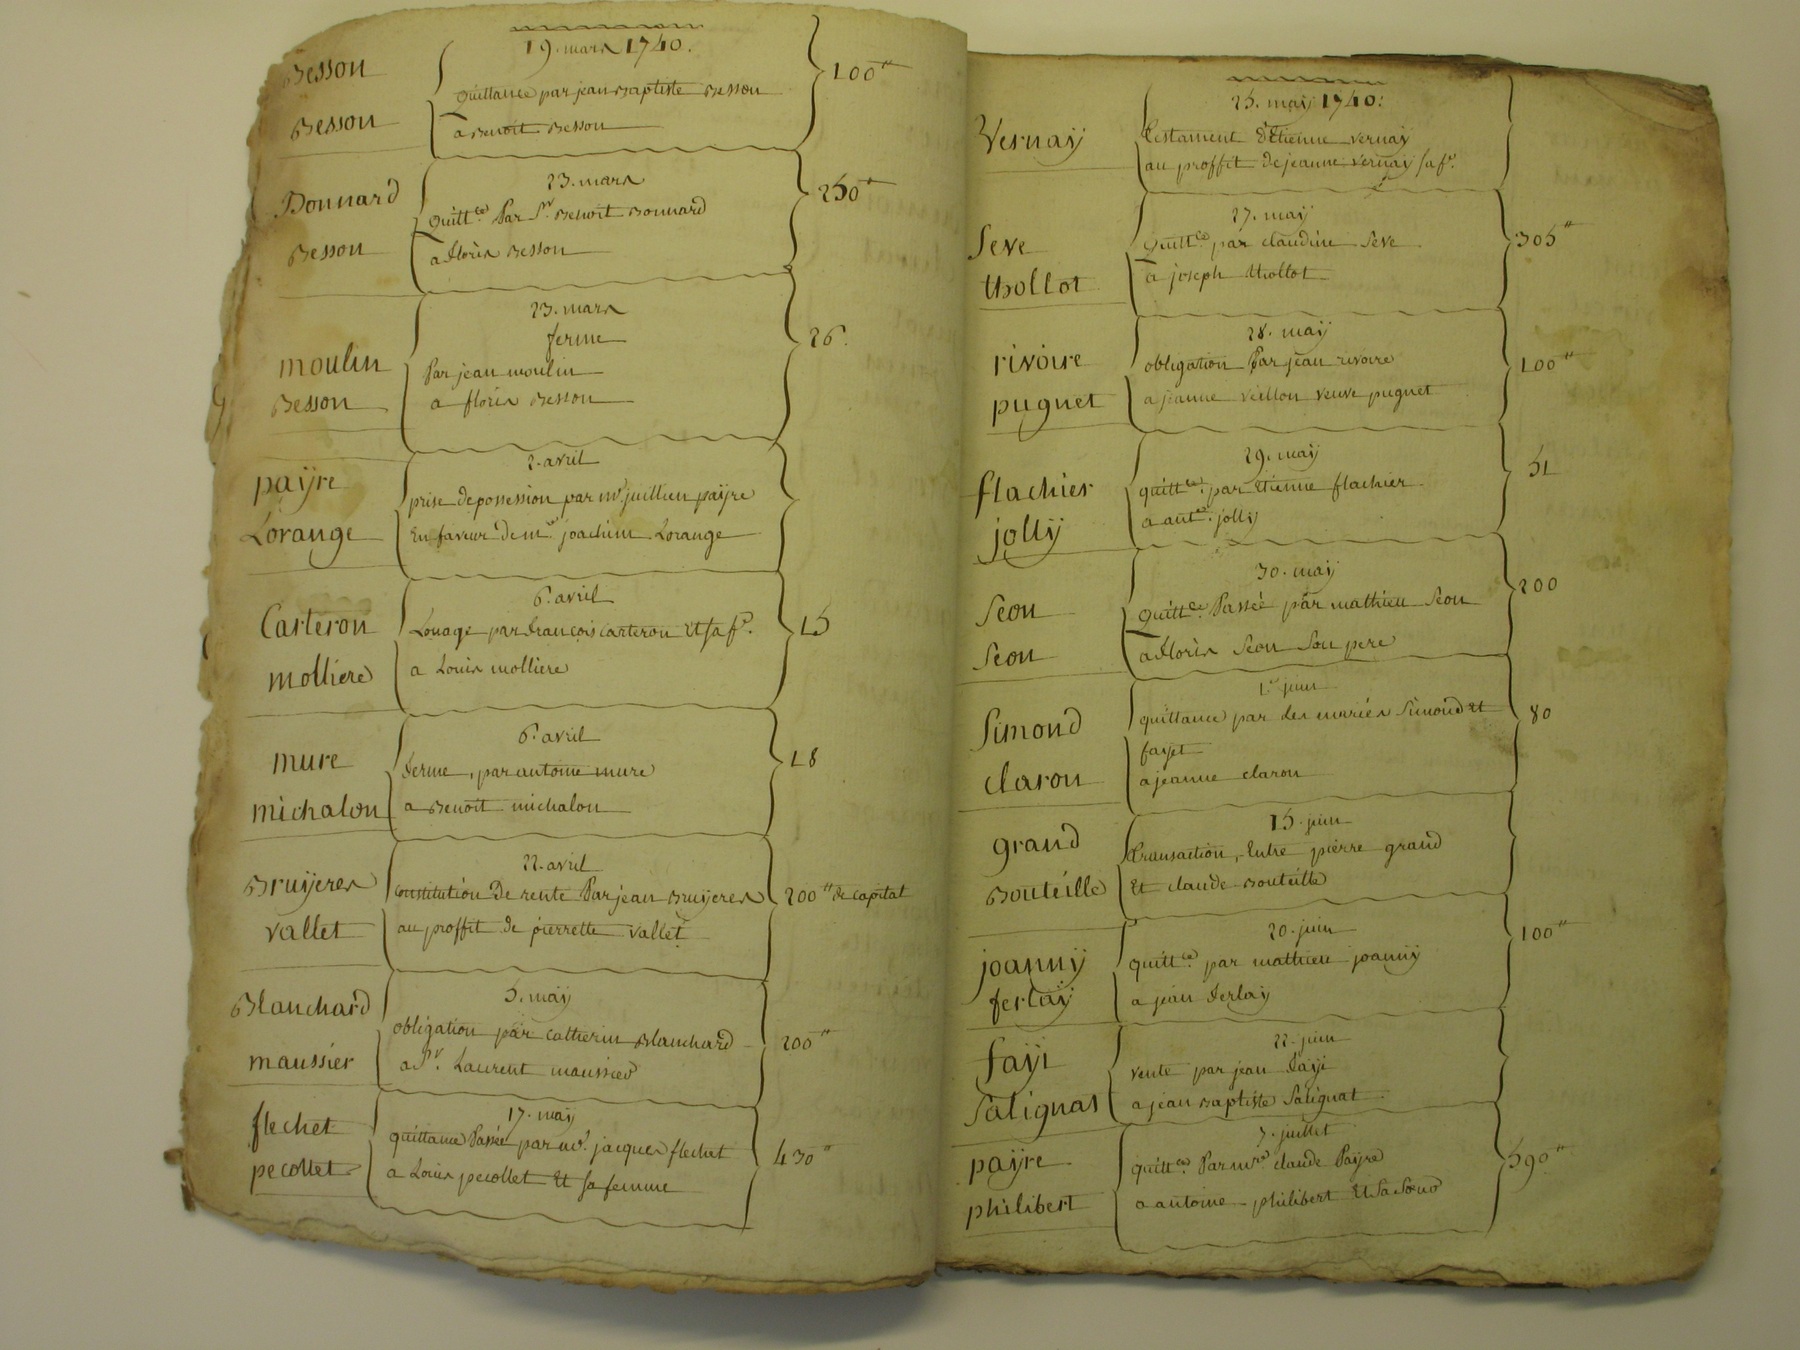 19. mars 1740.
Besson
Quittance par jean Baptiste Besson
100#
Besson
a Benoit Besson
23. mars
Bonnard
Quitt.ce Par S.r Benoit Bonnard
250#
Besson
a Floris Besson
23. mars
ferme
26.
moulin
Par jean moulin
Besson
a floris Besson
2. avril
payre
prise de possession par m.r juillien payre
Lorange
En faveur de m.re joachim Lorange
6. avril
Carteron
Louage par francois Carteron Et sa f.e
15
molliere
a Louis molliere
6. avril
mure
ferme, par antoine mure
18
michalon
a Benoit michalon
22. avril
Bruyeres
Constitution De rente Par jean Bruyeres
200# de capital
vallet
au proffit de pierrette vallet
5. may
Blanchard
obligation par catherin Blanchard
200#
maussier
a S.r Laurent maussier
17. may
flechet
quittance Passée par m.r jacques flechet
430#
pecollet
a Louis pecollet Et sa femme
25. may 1740.
Vernay
testament d'Etienne vernay
au proffit de jeanne vernay sa f.e
27. may
Seve
Quitt.ce par claudine Seve
305#
thollot
a joseph thollot
28. may
rivoire
obligation Par jean rivoire
100#
pugnet
a jeanne veillon veuve pugnet
29. may
flachier
quitt.ce par Etienne flachier
51
jolly
a ant.e jolly
30. may
Seon
Quitt.ce Passée par mathieu Seon
200
Seon
a Floris Seon Son pere
1.er juin
Simond
quittance par des mariés Simond et
80
fayet
claron
a jeanne claron
15. juin
grand
transaction, Entre pierre grand
Bouteille
Et claude Bouteille
20. juin
100#
joanny
quitt.ce par mathieu joanny
ferlay
a jean ferlay
22. juin
fayi
vente par jean fayi
Salignat
a jean Baptiste Salignat
3. juillet
payre
quitt.ce Par m.re claude Payre
590#
philibert
a antoine philibert Et Sa Soeur